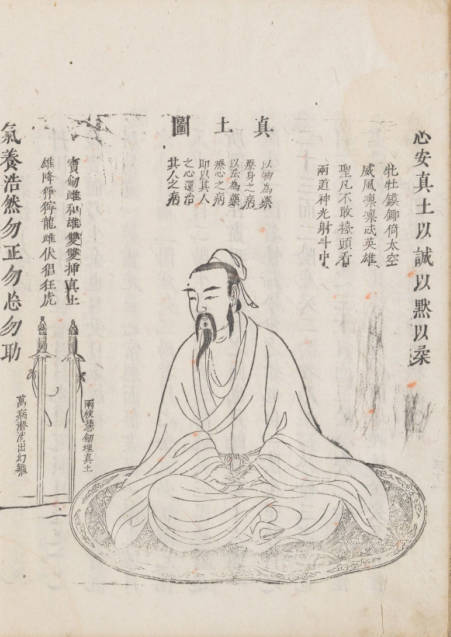 真土圖
心安真土以誠以默以柔
牝牡鏌鋣倚太空
威風凜凜英雄
聖凡不敢擡頭看
兩道神光射斗中
以物為藥
醫身之病
以法為藥
療心之病
即以其人
之心還治
其人之病
寶劍雌和雄雙雙挿真土
雄降獰獰龍雌伏猖狂虎
兩枝慧劍埋真土
萬病潛消出幻軀
氣養浩然勿正勿忘勿助